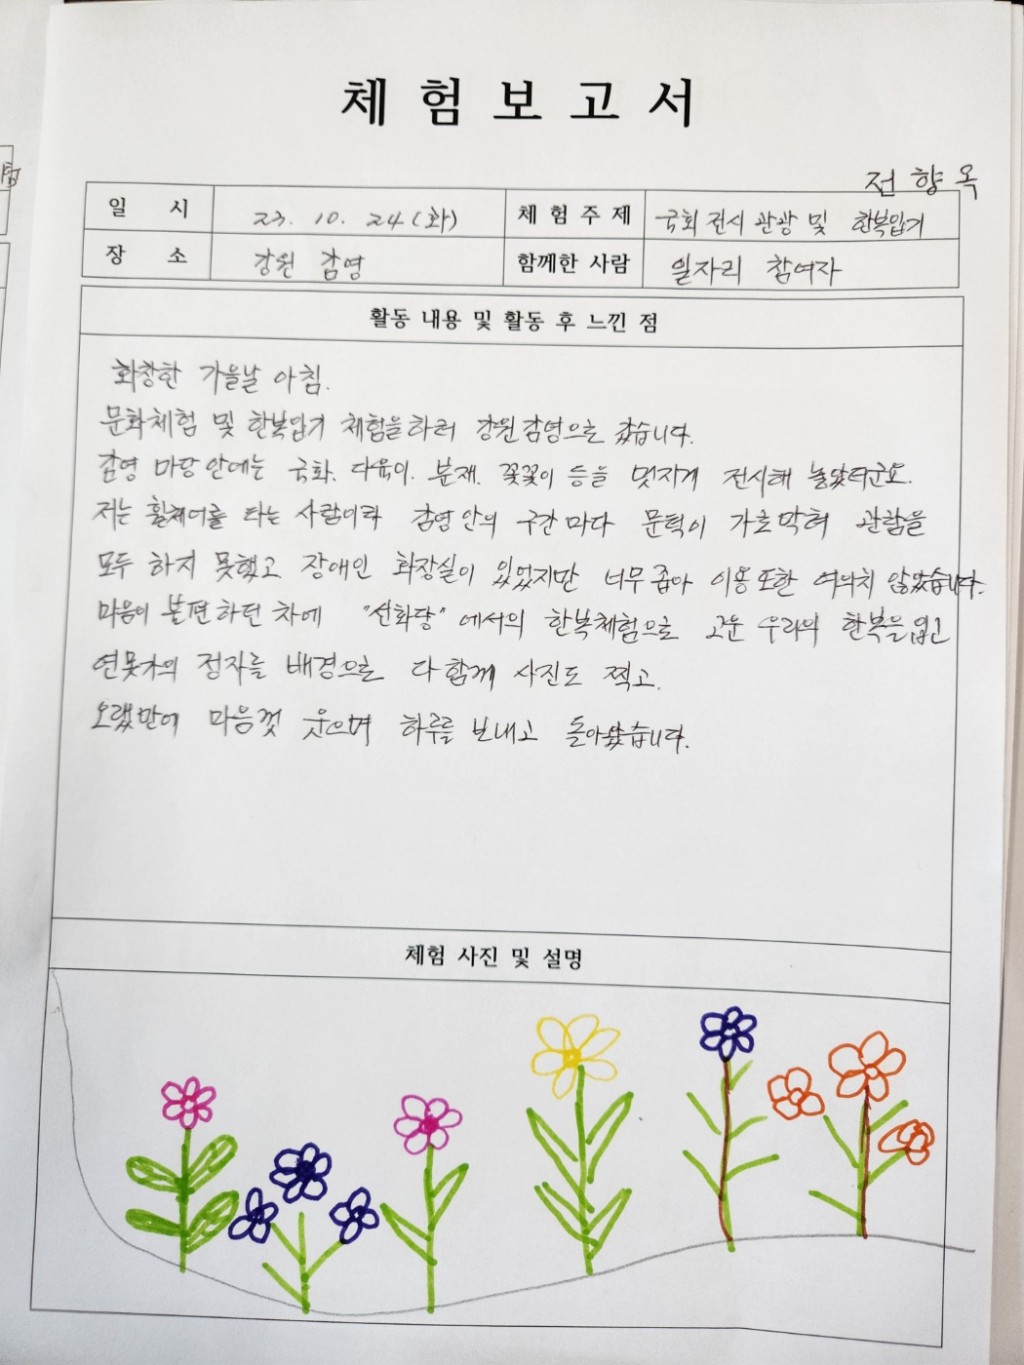 체 험 보 고 서
전 향 옥
일 시 23. 10. 24 (화) 체 험 주 제 국화 전시 관광 및 한복입기
장 소 강원 감영 함께한 사람 일자리 참여자
활동 내용 및 활동 후 느낀 점
화창한 가을날 아침.
문화체험 및 한복입기 체험을하러 강원감영으로 갔습니다.
감영 마당안에는 국화. 다육이. 분재. 꽃꽂이 등을 멋지게 전시해 놓았더군요.
저는 휠체어를 타는 사람이라 감영안의 구간마다 문턱이 가로막혀 관람을
모두 하지 못했고 장애인 화장실이 있었지만 너무좁아 이용 또한 여의치 않았습니다.
마음이 불편하던 차에 "선화당"에서의 한복체험으로 고운 우리의 한복을 입고
연못가의 정자를 배경으로 다함께 사진도 찍고.
오랬만에 마음껏 웃으며 하루를 보내고 돌아왔습니다.
체험 사진 및 설명